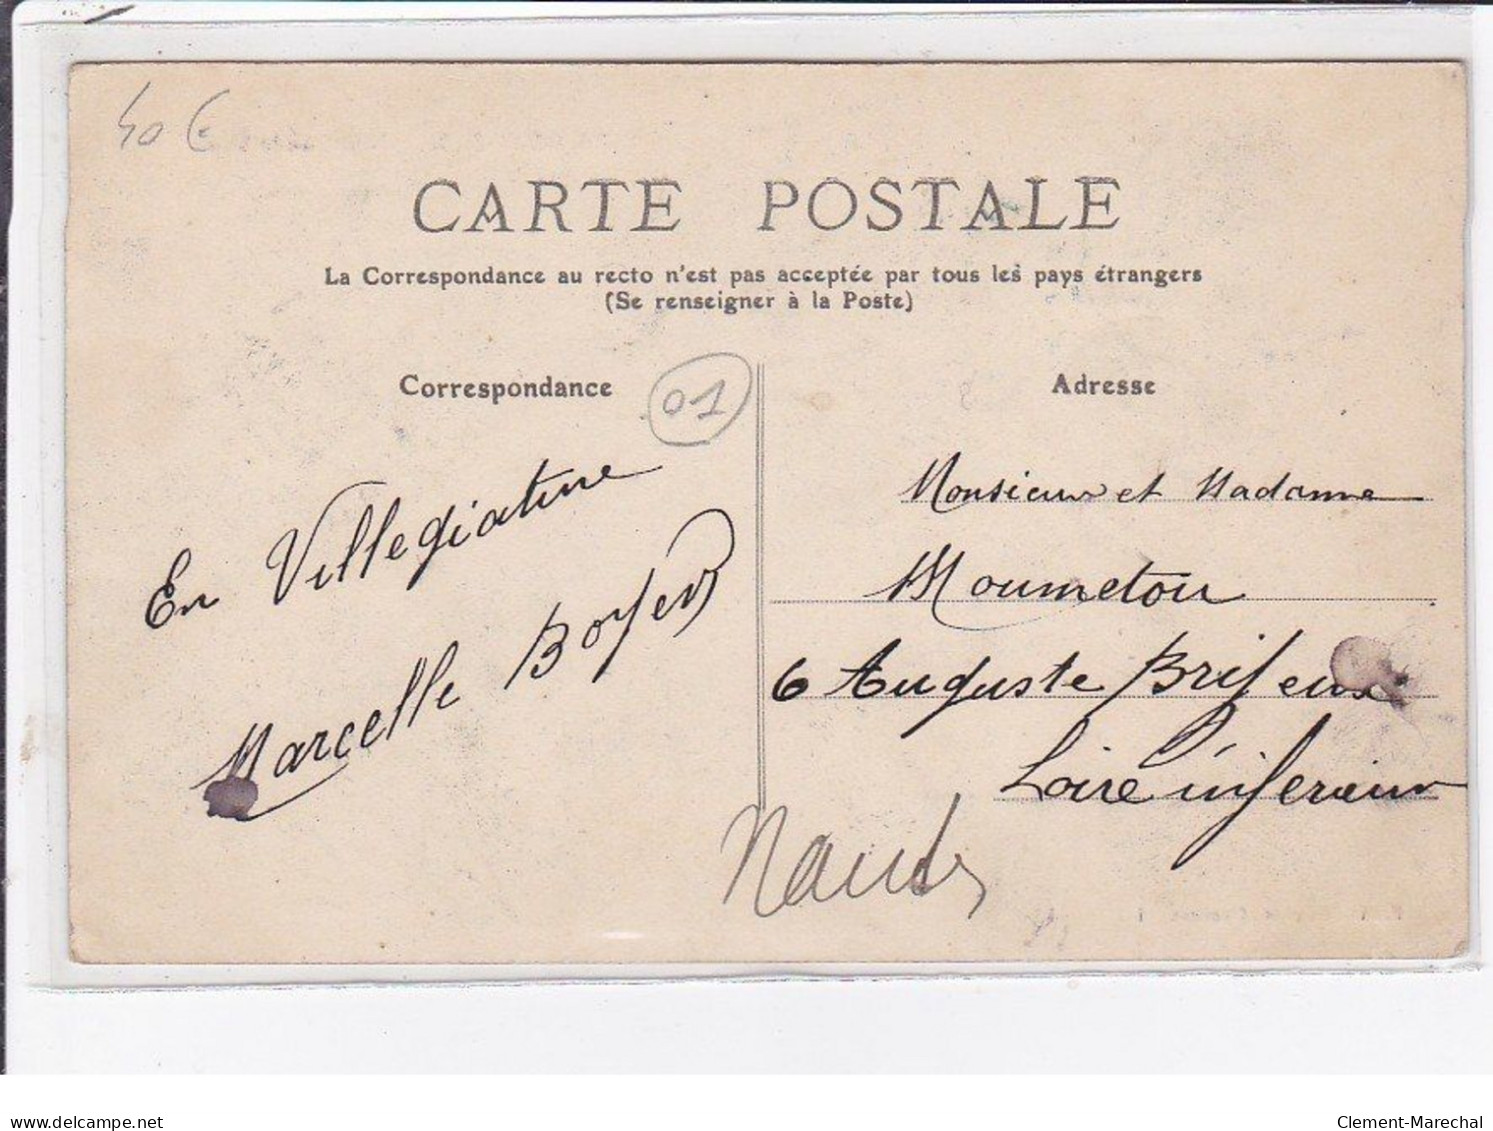 40 €
CARTE POSTALE
La Correspondance au recto n'est pas acceptée par tous les pays étrangers
(Se renseigner à la Poste)
Correspondance
01
En Villegiature
Marcelle Boyer
Adresse
Monsieur et Madame
Moumetou
6 Auguste Briseux
Loire inferieur
Nantes
www.delcampe.net
Clement-Marechal